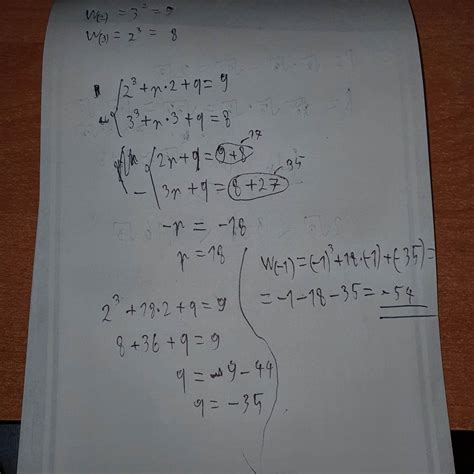 W(2) = 3² = 9
W(3) = 2³ = 8
2³ + r·2 + q = 9
3³ + r·3 + q = 8
2r + q = 9+8 17
3r + q = 8+27 35
-r = -18
r = 18
2³ + 18·2 + q = 9
8 + 36 + q = 9
q = 9 - 44
q = -35
W(-1) = (-1)³ + 18·(-1) + (-35) =
= -1 - 18 - 35 = -54